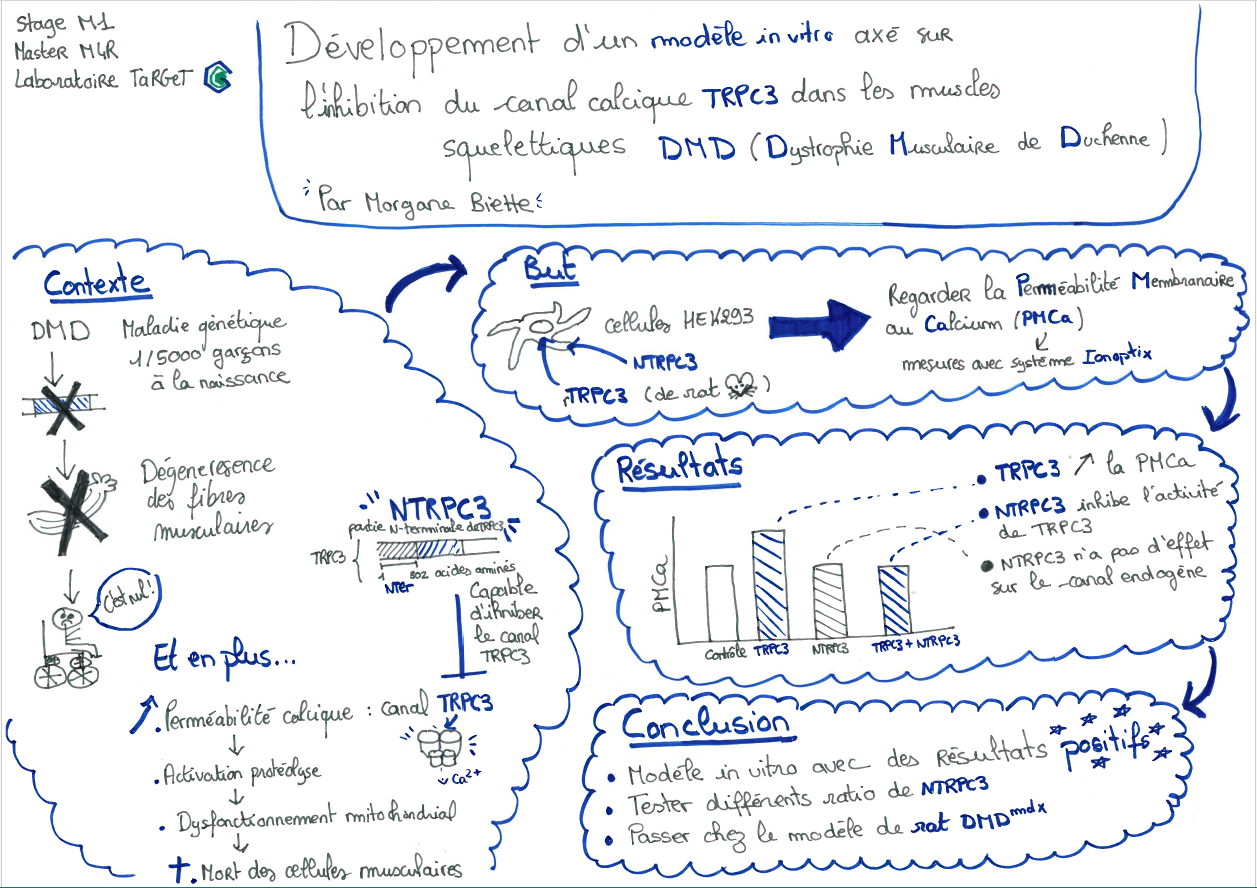 Stage M1
Master M4R
Laboratoire TaRGeT
Développement d'un modèle in vitro axé sur
l'inhibition du canal calcique TRPC3 dans les muscles
squelettiques DMD (Dystrophie Musculaire de Duchenne)
Par Morgane Biette
Contexte
DMD
Maladie génétique
1/5000 garçons
à la naissance
Dégéneresence
des fibres
musculaires
C'est nul!
NTRPC3
partie N-terminale de TRPC3
TRPC3
1
302 acides aminés
NTer
Capable
d'inhiber
le canal
TRPC3
Et en plus...
Perméabilité calcique : canal TRPC3
Ca2+
. Activation protéolyse
. Dysfonctionnement mitochondrial
. Mort des cellules musculaires
But
cellules HEK293
NTRPC3
TRPC3 (de rat )
Regarder la Perméabilité Membranaire
au Calcium (PMCa)
mesures avec système Ionoptix
Résultats
PMCa
Contrôle TRPC3 NTRPC3 TRPC3 + NTRPC3
• TRPC3 ↗ la PMCa
• NTRPC3 inhibe l'activité
de TRPC3
• NTRPC3 n'a pas d'effet
sur le canal endogène
Conclusion
• Modèle in vitro avec des Résultats positifs
• Tester différents ratio de NTRPC3
• Passer chez le modèle de rat DMDmdx